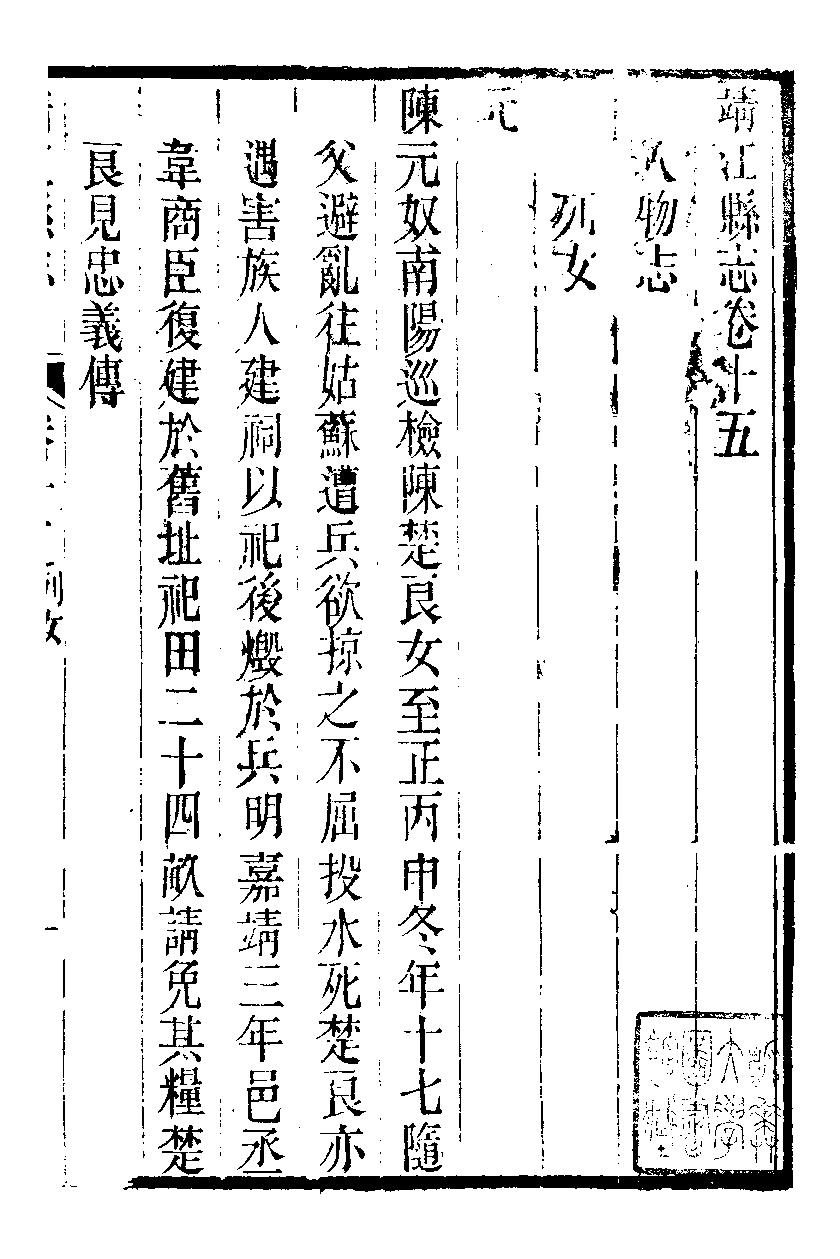 靖江縣志卷十五
人物志
列女
元
陳元奴南陽巡檢陳楚良女至正丙申冬年十七隨
父避亂往姑蘇遭兵欲掠之不屈投水死楚良亦
遇害族人建祠以祀後燬於兵明嘉靖三年邑丞
韋商臣復建於舊址祀田二十四畝請免其糧楚
良見忠義傳
列女